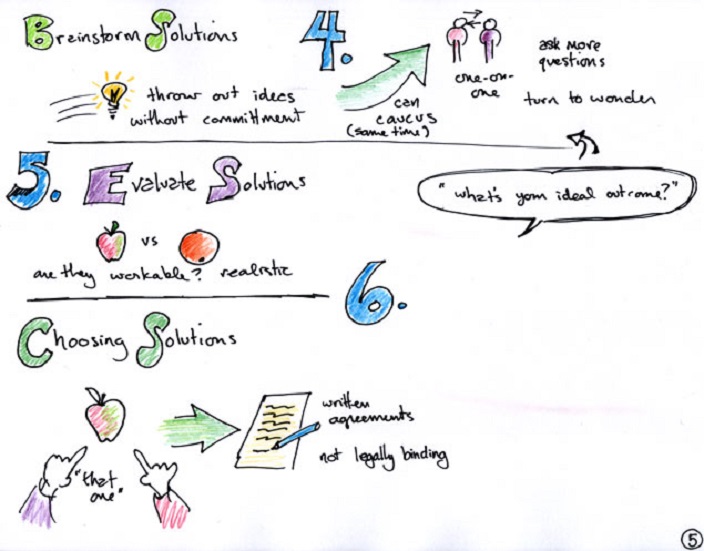 Brainstorm Solutions
4.
throw out ideas
without committment
can
caucus
(same time?)
one-on-
one
ask more
questions
turn to wonder
"what's your ideal outcome?"
5. Evaluate Solutions
vs
are they workable? realistic
6.
Choosing Solutions
"that
one"
written
agreements
not legally binding
5